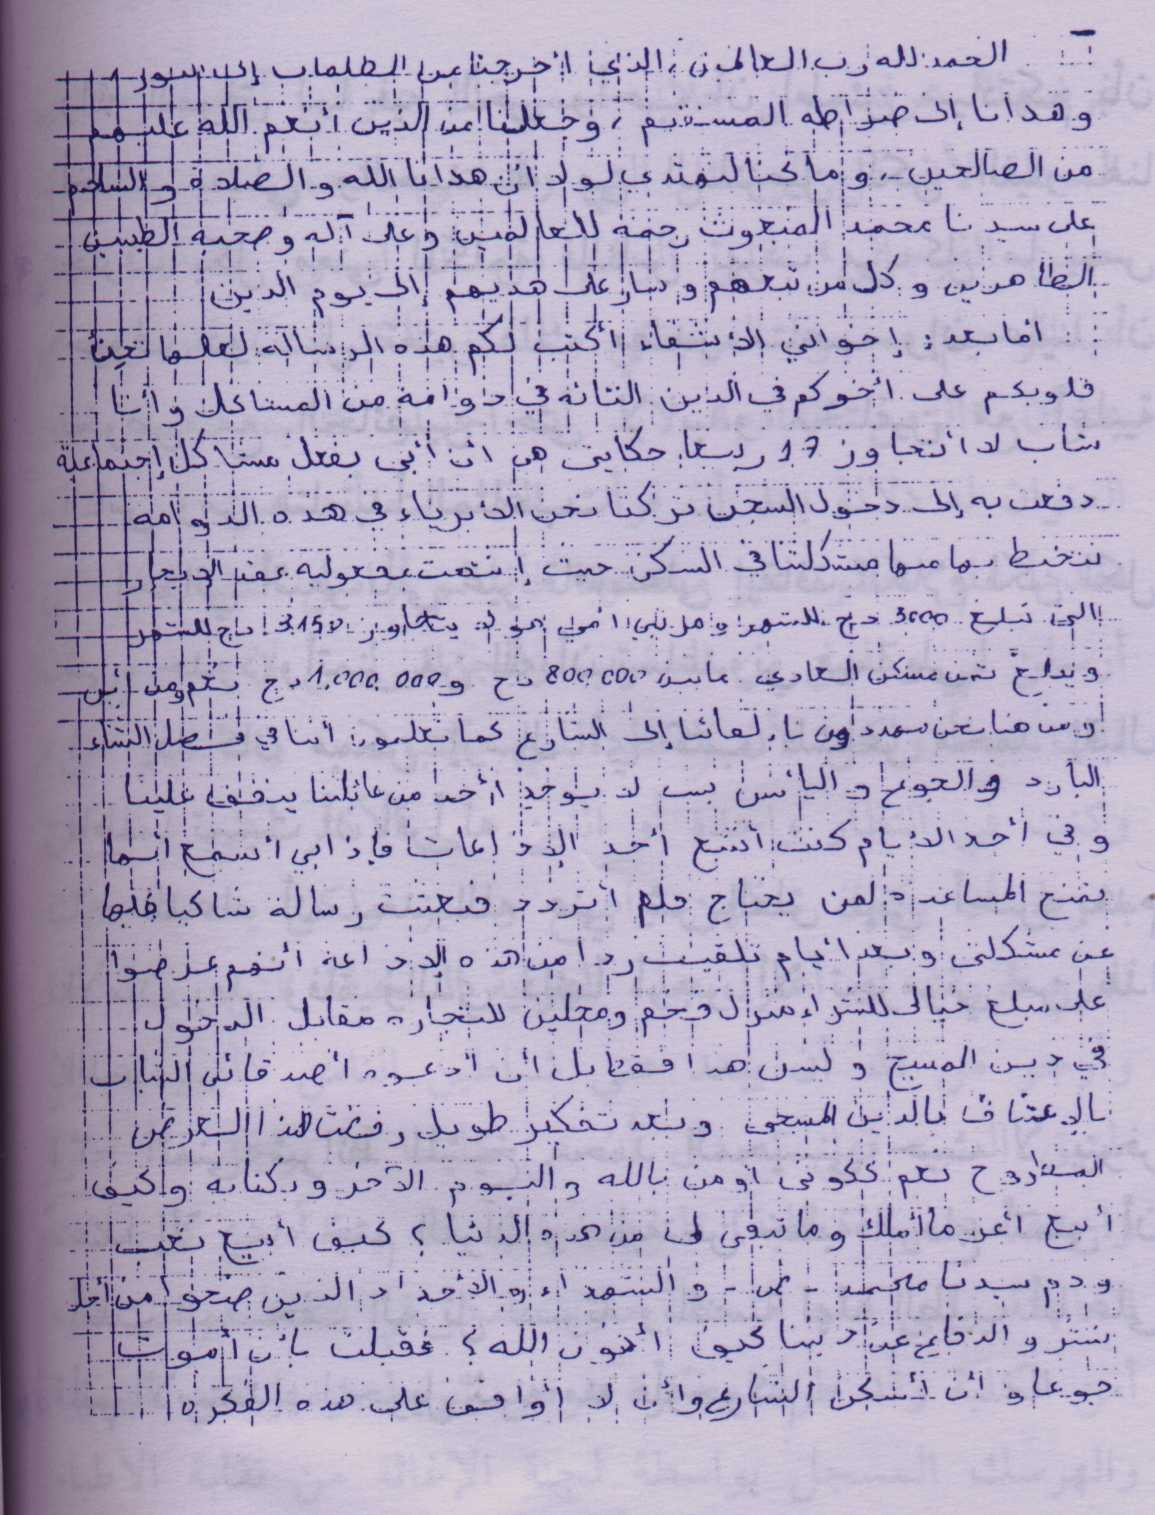 الحمد لله رب العالمين، الذي أخرجنا من الظلمات إلى النور
وهدانا إلى صراطه المستقيم، وجعلنا من الذين أنعم الله عليهم
من الصالحين، وما كنا لنهتدي لولا ان هدانا الله والصلاة والسلام
على سيدنا محمد المبعوث رحمة للعالمين وعلى آله وصحبه الطيبين
الطاهرين وكل من تبعهم وسار على هديهم إلى يوم الدين
اما بعد: إخواني الأشقاء أكتب لكم هذه الرسالة لعلها
قلوبكم على أخوكم في الدين التائه في دوامة من المشاكل وأنا
شاب لا أتجاوز 17 ربيعا حكايتي هي أن أبي بفعل مشاكل إجتماعية
دفعت به إلى دخول السجن تركنا نحن الأبرياء في هذه الدوامة
نتخبط بها منها مشكلتنا في السكن حيث إنتهت مفعولية عقد الإيجار
التي تبلغ 3000 دج للشهر و أمي لا يتجاوز 3150 دج للشهر
ويبلغ ثمن مسكن العادي مابين 800.000 دج و 1.000.000 دج نعم ومن أين
ومن هنا نحن مهددون بإلقائنا إلى الشارع كما تعلمون أننا في فصل الشتاء
البارد والجوع و اليأس بيب لا يوجد أحد من عائلتنا ينفق علينا
وفي أحد الأيام كنت أتتبع أحد الإذاعات فإذا بي أسمع أنها
تمنح المساعدة لمن يحتاج فلم أتردد فبعثت رسالة شاكيا فيها
عن مشكلتي وبعد أيام تلقيت ردا من هذه الإذاعة أنهم عرضوا
على مبلغ خيالي للشراء منزل فخم ومحلين للتجارة مقابل الدخول
في دين المسيح وليس هدا فمقابل أن أدعو أصدقائي الشباب
بالإعتناق بالدين المسحي وبعد تفكير طويل رفضت هذا العرض
المطروح نعم ككوني اومن بالله واليوم الآخر وبكتابه وكيف
أبيع أعز ما أملك وما تبقى لي من هذه الدنيا؟ كيف أبيع تعب
ودم سيدنا محمد - ص - و الشهداء و الأجداد الذين ضحوا من أجل
نشر والدفاع عن ديننا كيف أخون الله؟ فقبلت بأن أموت
جوعا و أن أسكن الشارع وأن لا أوافق على هذه الفكرة